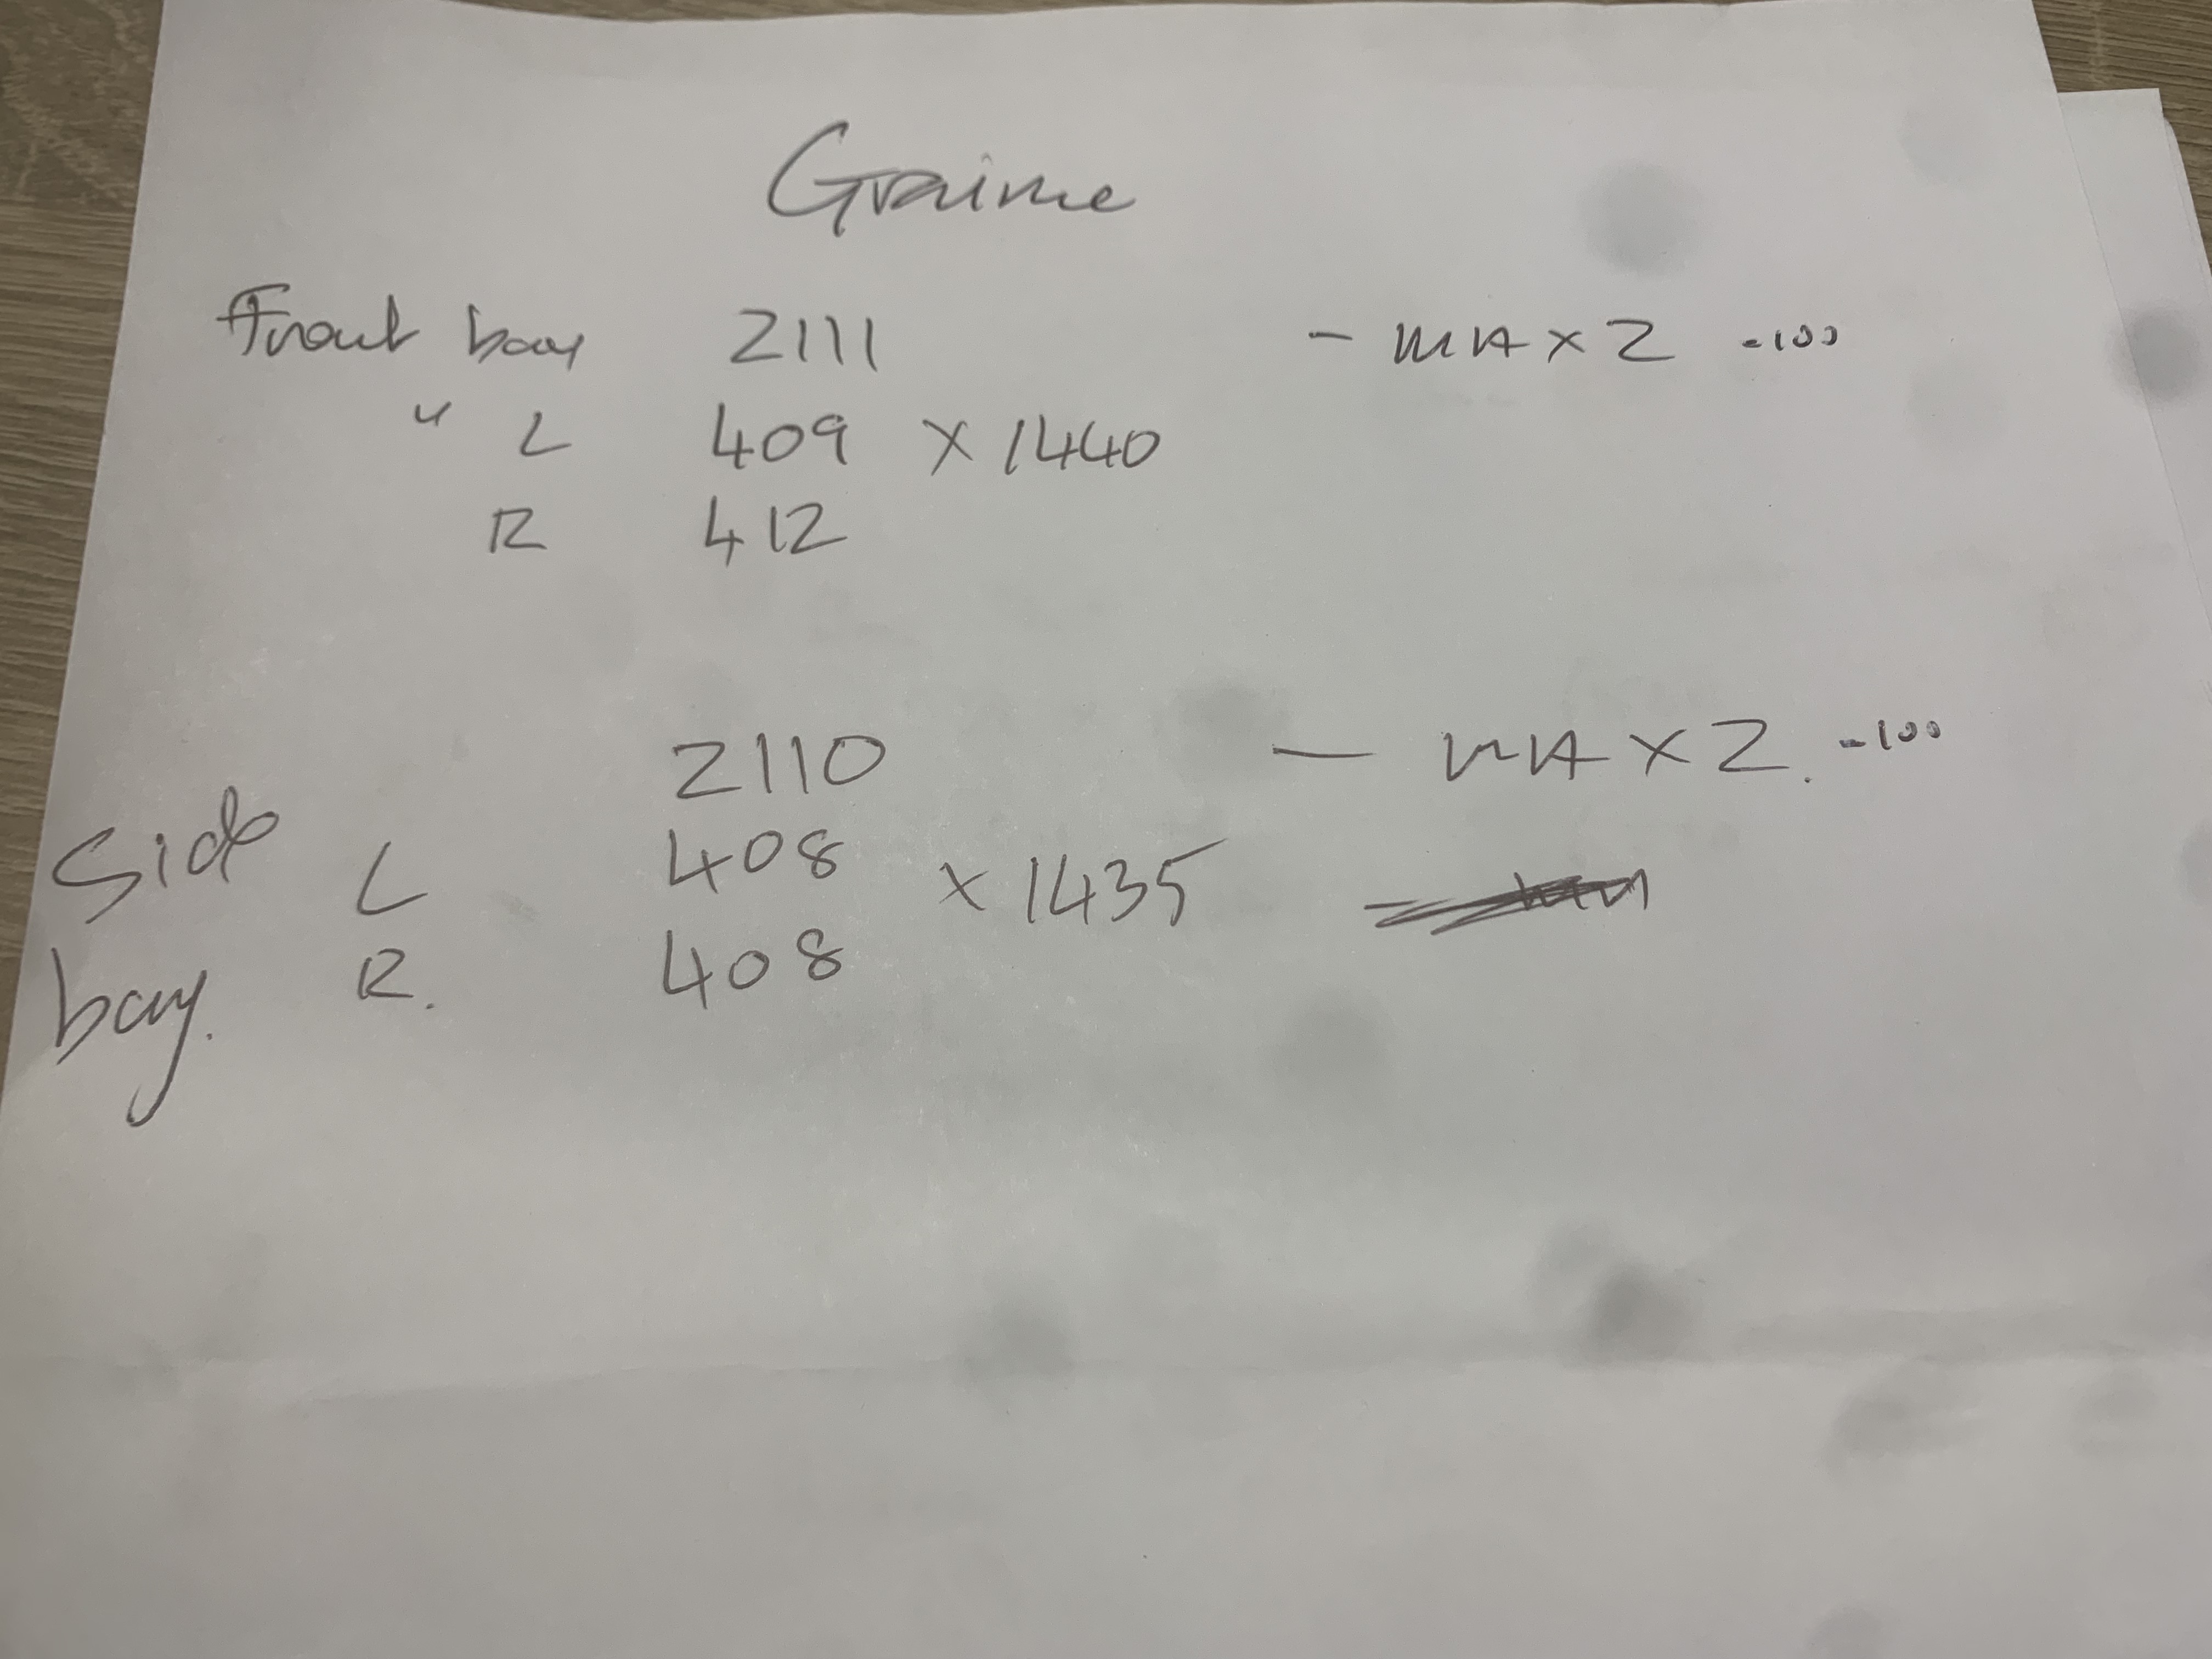 Graime
Front bay 2111 - MAX 2 -100
" L 409 X 1440
R 412
2110 - MAX 2. -100
Side L 408 X 1435
bay. R. 408